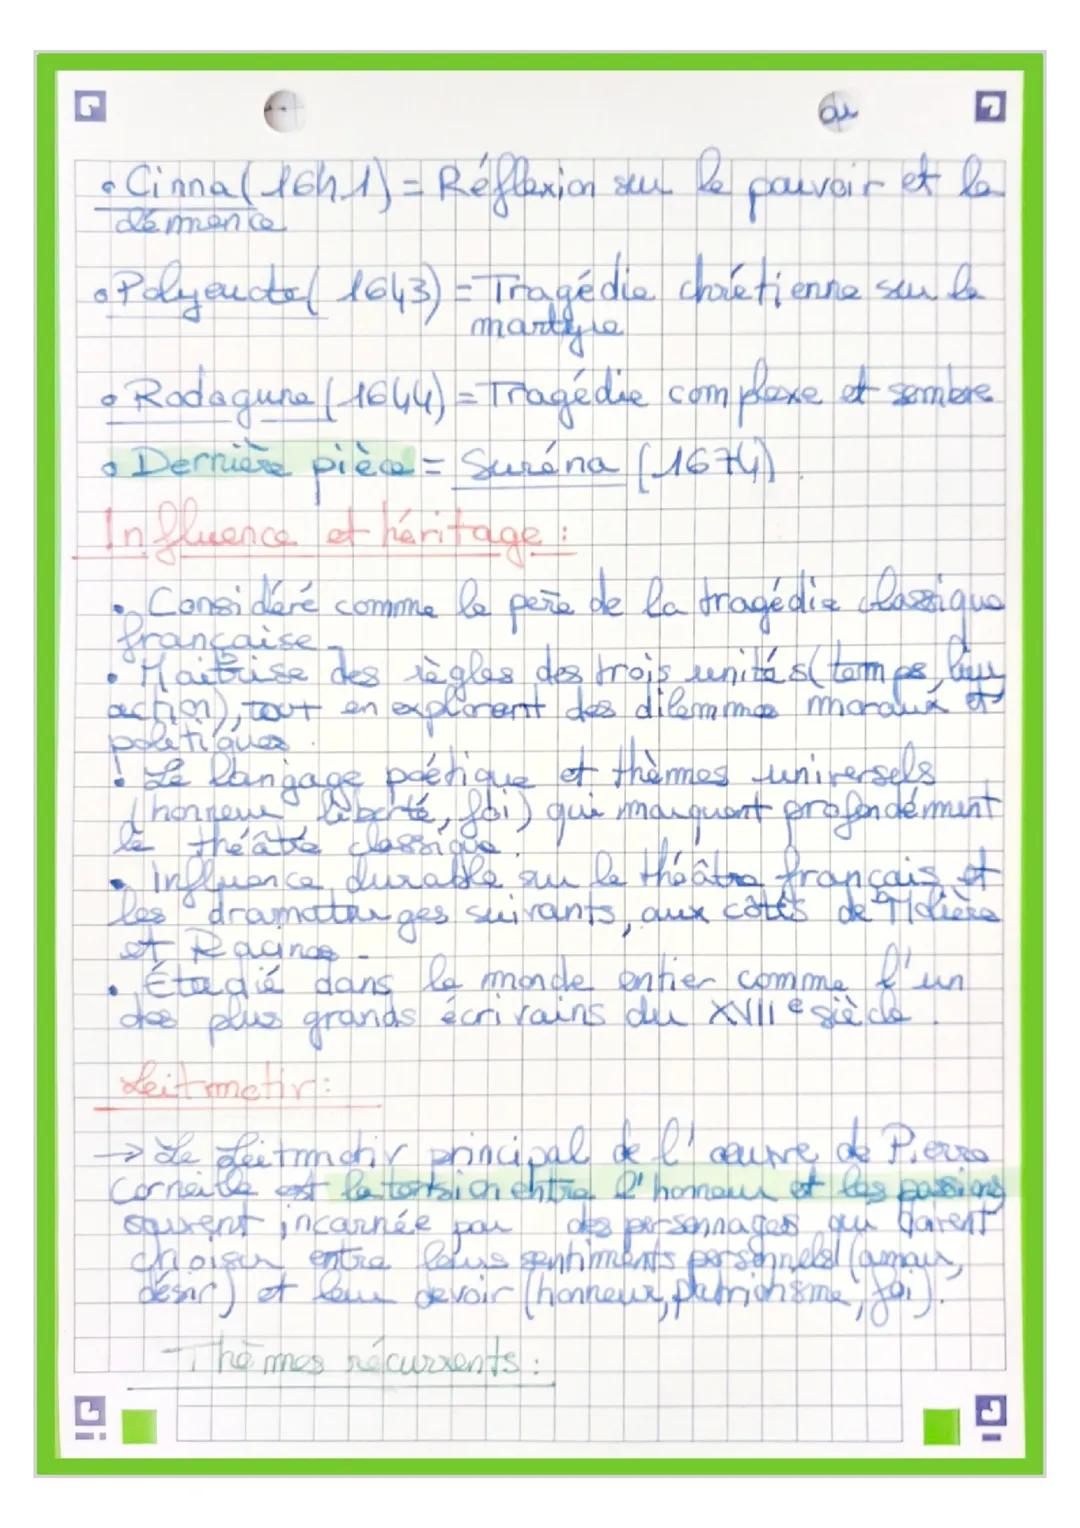 • Cinna (1641) = Réflexion sur le pouvoir et la
clémence
• Polyeucte (1643) = Tragédie chrétienne sur le
martyre
• Rodogune (1644) = Tragédie complexe et sombre
• Dernière pièce = Suréna (1674).
Influence et héritage :
• Considéré comme le père de la tragédie classique
française.
• Maitrise des règles des trois unités (temps, lieu
action), tout en explorant des dilemmes moraux et
politiques.
• Le langage poétique et thèmes universels
(honneur liberté, foi) qui marquent profondément
le théâtre classique.
• Influence durable sur le théâtre français et
les dramaturges suivants, aux côtés de Molière
et Racine.
• Étudié dans le monde entier comme l'un
des plus grands écrivains du XVIIe siècle.
Leitmotiv :
→ Le Leitmotiv principal de l'œuvre de Pierre
Corneille est la tension entre l'honneur et les passions
souvent incarnée par des personnages qui doivent
choisir entre leurs sentiments personnels (amour,
désir) et leur devoir (honneur, patriotisme, foi).
Thèmes récurrents :